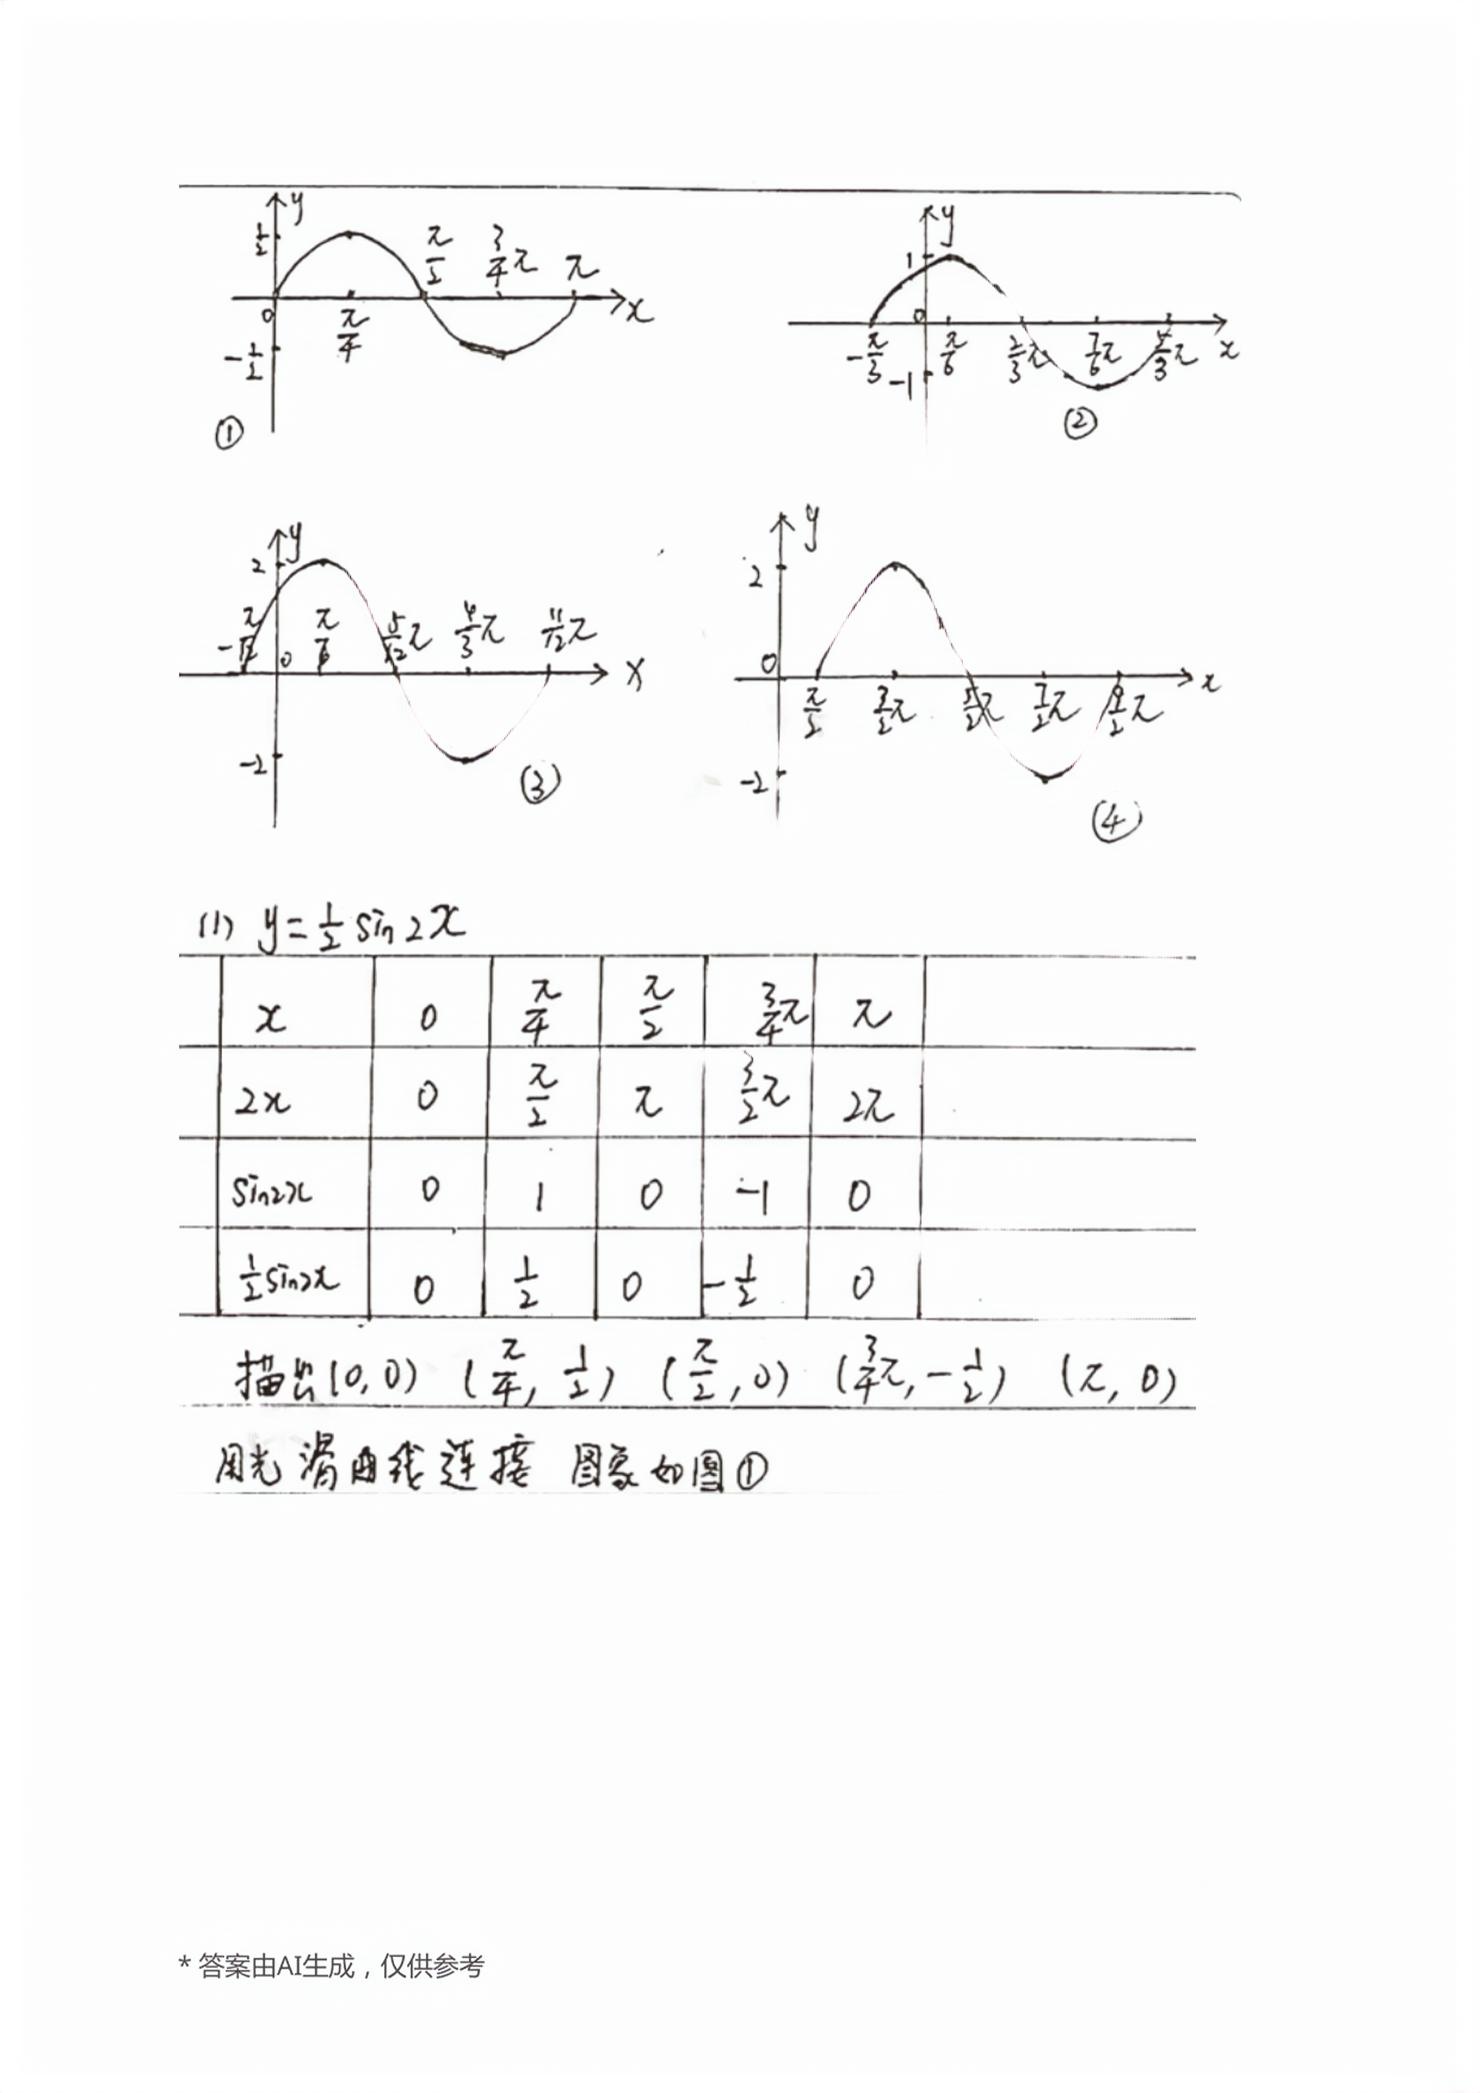 y
1/2 π/2 3/4π π
0 π/4 x
-1/2
①
y
1
0 x
-π/3 π/6 2/3π 7/6π 5/3π
-1
②
y
2
-π/12 π/6 5/12π 4/3π 11/12π
0 x
-2
③
y
2
0 x
π/2 3/2π 5/2π 7/2π 9/2π
-2
④
(1) y=1/2 sin2x
x 0 π/4 π/2 3/4π π
2x 0 π/2 π 3/2π 2π
sin2x 0 1 0 -1 0
1/2sin2x 0 1/2 0 -1/2 0
描出(0,0) (π/4, 1/2) (π/2, 0) (3/4π, -1/2) (π, 0)
用光滑曲线连接 图象如图①
* 答案由AI生成，仅供参考